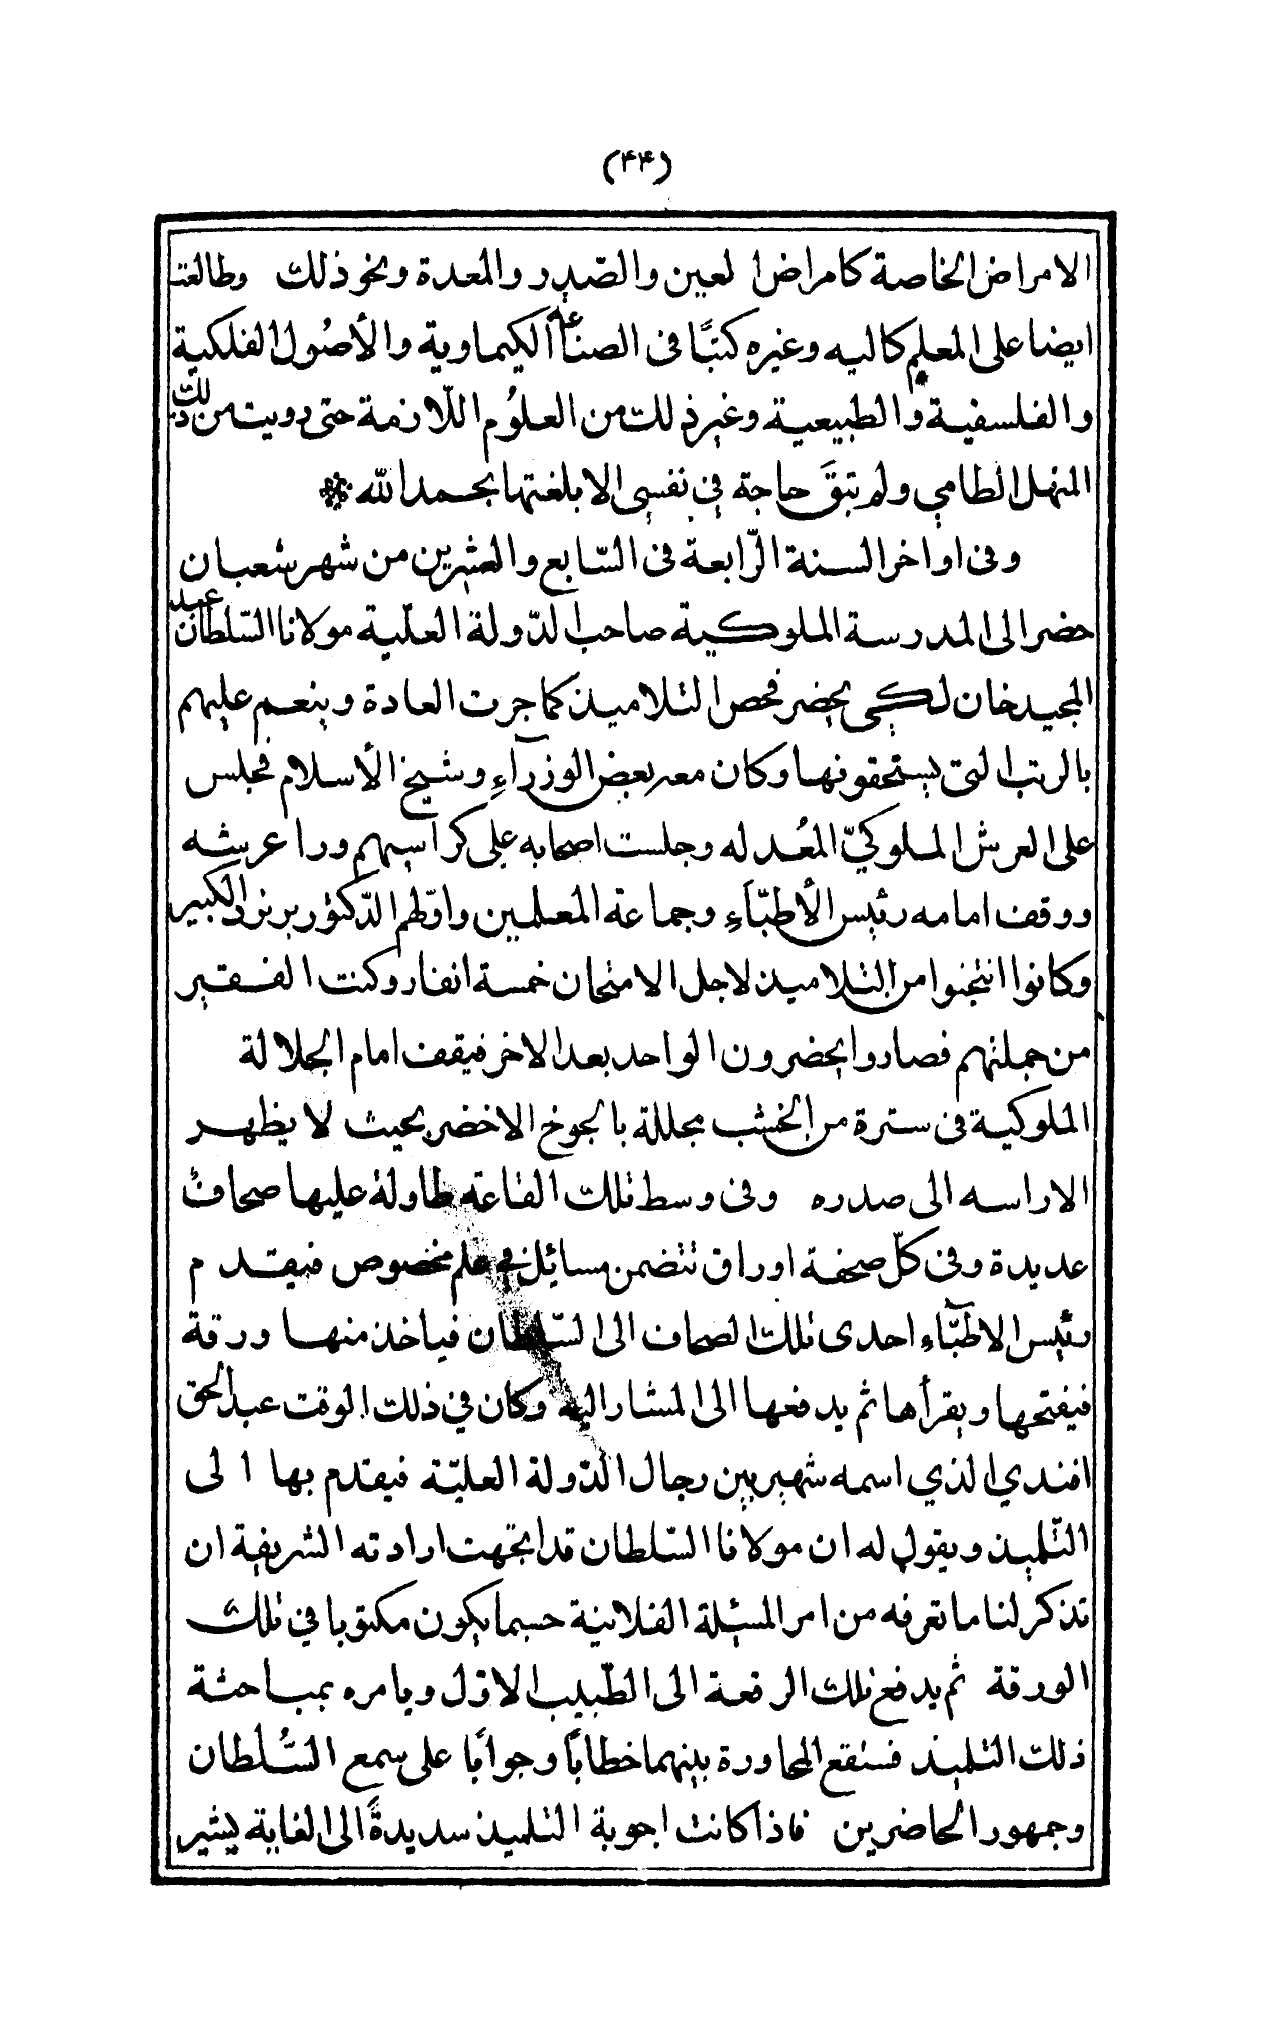 (٤٤)
الامراض الخاصة كامراض العين والصّدر والمعدة ونحو ذلك وطالعت
ايضا على المعلم كاليه وغيره كتبًا في الصناعة الكيماوية والأصُول الفلكية
والفلسفية والطبيعية وغير ذلك من العلوُم اللّازمة حتى رويت من ذلك
المنهل الطامي ولم تبقَ حاجة في نفسي الا بلغتها بحمد الله
وفى اواخر السنة الرّابعة فى السّابع والعشرين من شهر شعبان
حضر الى المدرسة الملوكية صاحب الدّولة العليّة مولانا السّلطان عبد
المجيد خان لكي يحضر فحص التلاميذ كما جرت العادة وينعم عليهم
بالرتب التى يستحقونها وكان معه بعض الوزرآءِ وشيخ الأسلام فجلس
على العرش الملوكيّ المُعد له وجلست اصحابه على كراسيهم ورا عرشه
ووقف امامه رئيس الأطبّاَءِ وجماعة المعلمين واوّلهم الدّكتور برنرد الكبير
وكانوا انتخبوا من التلاميذ لاجل الامتحان خمسة انفار وكنت الفقير
من جملتهم فصاروا يحضرون الواحد بعد الاخر فيقف امام الجلالة
الملوكية فى سترة من الخشب مجللة بالجوخ الاخضر بحيث لا يظهر
الا راسه الى صدره وفى وسط تلك القاعة طاولة عليها صحافٌ
عديدة وفى كلّ صحفة اوراق تتضمن مسائل في علم مخصوص فيقدم
رئيس الاطبّآء احدى تلك الصحاف الى السّلطان فياخذ منها ورقة
فيفتحها ويقرأها ثم يدفعها الى المشار اليه وكان في ذلك الوقت عبد الحق
افندي الذي اسمه شهير بين رجال الدّولة العليّة فيقدم بها الى
التّلميذ ويقول له ان مولانا السّلطان قد اتجهت ارادته الشريفة ان
تذكر لنا ما تعرفه من امر المسئلة الفلانية حسبما يكون مكتوبا في تلك
الورقة ثم يدفع تلك الرقعة الى الطّبيب الاوّل ويامره بمباحثة
ذلك التلميذ فستقع المحاورة بينهما خطابًا وجوابًا على سمع السُّلطان
وجمهور الحاضرين فاذا كانت اجوبة التلميذ سديدةً الى الغاية يشير